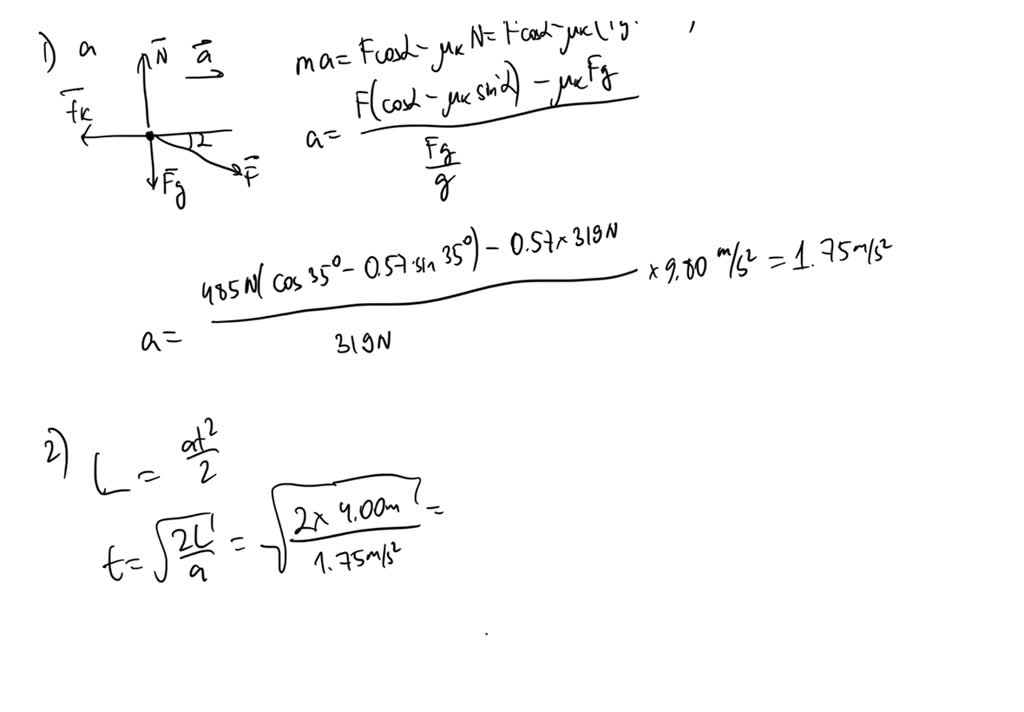 1) a
N⃗ a⃗
f⃗k
α
F⃗
F⃗g
ma = Fcosα − μk N = Fcosα − μk (
a = (F(cosα − μk sinα) − μk Fg) / (Fg/g)
a = (485N(cos 35° − 0.57·sin 35°) − 0.57 × 319N) / 319N × 9.80 m/s² = 1.75 m/s²
2) L = at²/2
t = √(2L/a) = √(2 × 4.00m / 1.75 m/s²) =